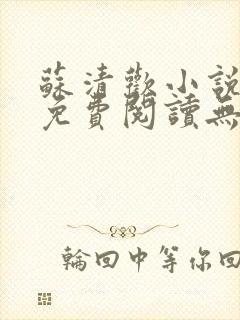 蘇清歡小說
免費閱讀無
輪回中等你回